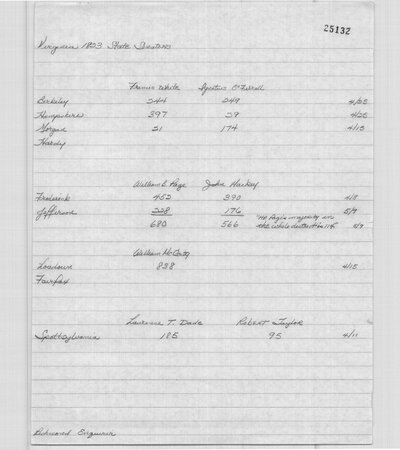 25132
Virginia 1823 State Senators
Francis White Ignatius O'Ferrall
Berkeley 244 249 4/25
Hampshire 397 29 4/25
Morgan 21 174 4/15
Hardy
William B. Page John Mackey
Frederick 452 390 4/8
Jefferson 228 176 5/9
680 566 "Mr Page's majority in the whole district is 114" 5/9
William McCarty
Loudoun 838 4/15
Fairfax
Lawrence T. Dade Robert Taylor
Spottsylvania 185 95 4/11
Richmond Enquirer